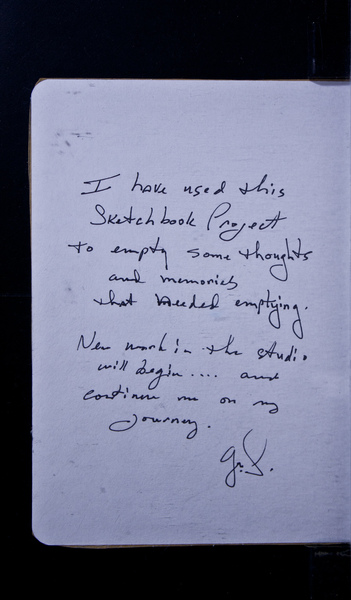 I have used this
Sketchbook Project
to empty some thoughts
and memories
that needed emptying.
New work in the studio
will begin.... and
continue me on my
journey.